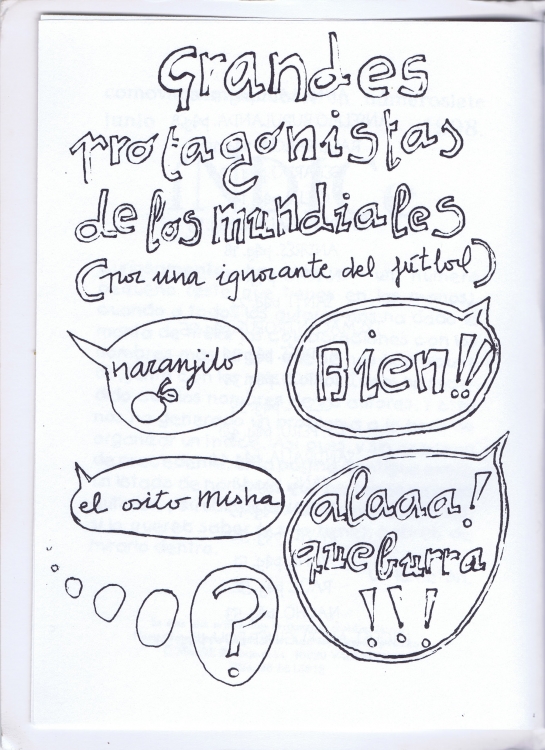 Grandes
protagonistas
de los mundiales
(por una ignorante del fútbol)
naranjito
Bien!!
el osito Misha
alaaa!
que burra
!!!
?